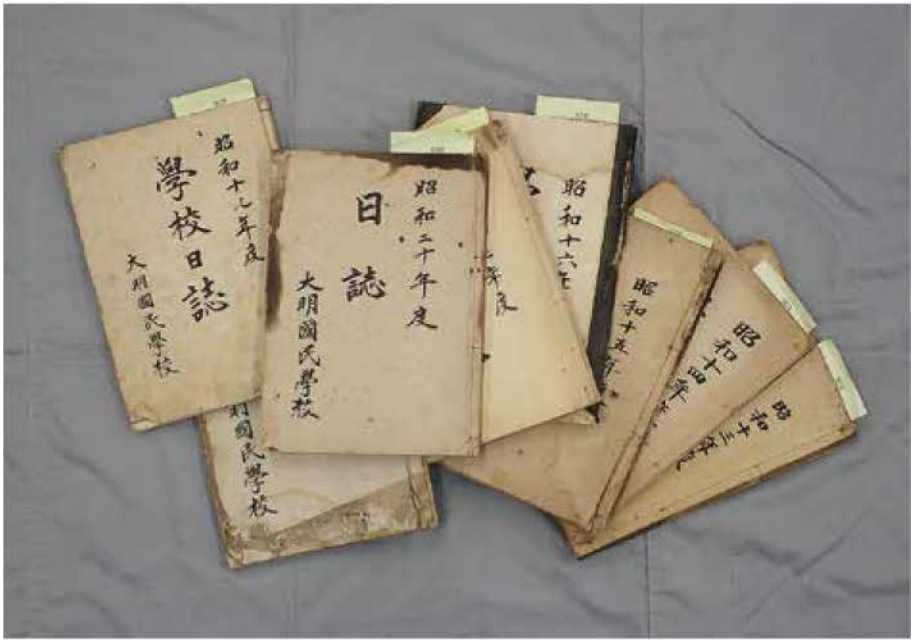 昭和十九年度
學校日誌
大明國民學校
昭和二十年度
日誌
大明國民學校
明國民學校
年度
昭和十六年
昭和十五年
昭和十四年
昭和十三年度